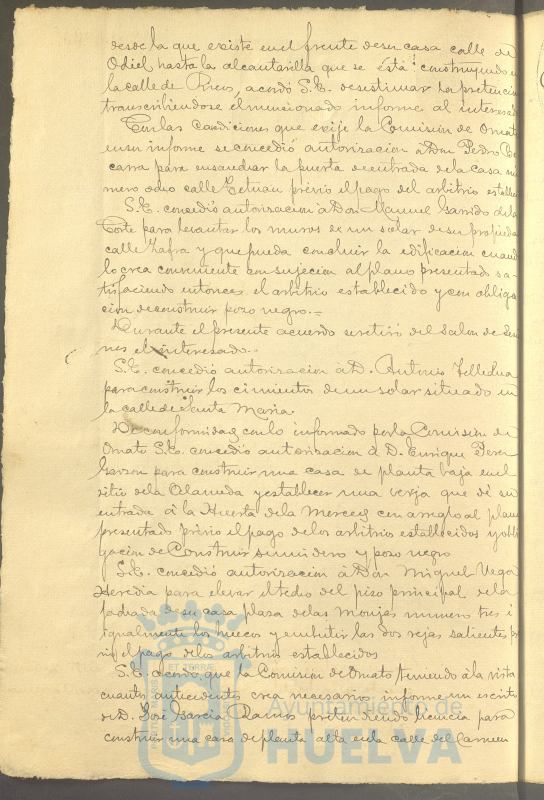 desde la que existe en el frente de su casa calle de
Odiel hasta la alcantarilla que se está construyendo e
la calle de Ricos, acordó S.E. desestimar la pretencio
transcribiendose el mencionado informe al interesad
Con las condiciones que exije la Comision de Ornato
en su informe se concedió autorizacion a Don Pedro
carra para ensanchar la puerta de entrada de la casa nu
mero ocho calle Tetuan prévio el pago del arbitrio estable
S.E. concedió autorizacion á Don Manuel Garrido de la
Corte para levantar los muros de un solar de su propieda
calle Zafra y que pueda concluir la edificacion cuand
lo crea conveniente con sujecion al plano presentado sa
tisfaciendo entonces el arbitrio establecido y con obliga
cion de construir pozo negro.=
Durante el presente acuerdo se retiró del Salon de Sesi
nes el interesado.
S.E. concedió autorizacion á D. Antonio
para construir los cimientos de un solar situado en
la calle de Santa Maria.
De conformidad con lo informado por la Comision de
Ornato S.E. concedió autorizacion á D. Enrique Perez
Garzon para construir una casa de planta baja en el
sitio de la Alameda y establecer una verja que dé su
entrada á la Huerta de la Merced con arreglo al plano
presentado prévio el pago de los arbitrios establecidos y obli
gacion de Construir sumidero y pozo negro
S.E. concedió autorizacion á Don Miguel Vega
Heredia para elevar el techo del piso principal de la
fachada de su casa plaza de las Monjas numero tres é
igualmente los huecos y embutir las dos rejas salientes pr
vio el pago de los arbitrios establecidos
S.E. acordó que la Comision de Ornato teniendo á la vista
cuantos antecedentes crea necesarios informe un escrito
de D. José Garcia Ramos pretendiendo licencia para
construir una casa de planta alta en la calle del Carmen
ET TERRAE
Ayuntamiento de
HUELVA